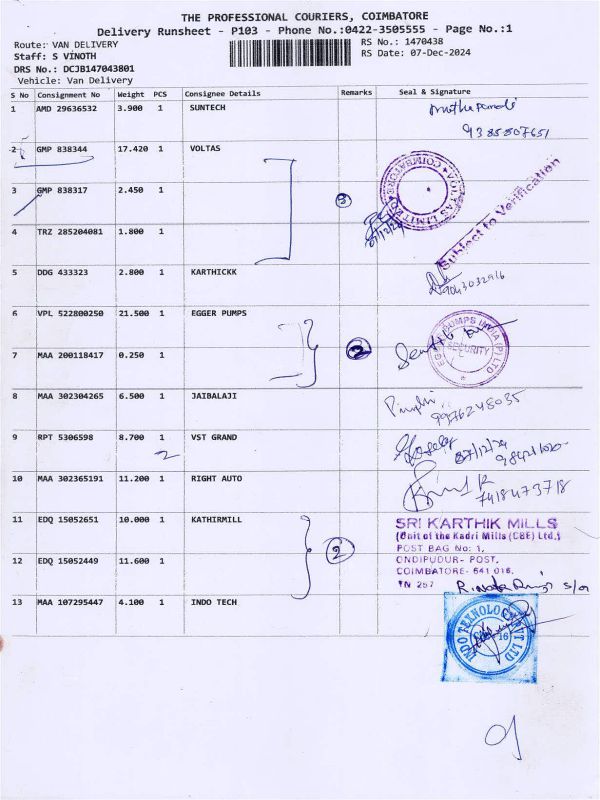 THE PROFESSIONAL COURIERS, COIMBATORE
Delivery Runsheet - P103 - Phone No.:0422-3505555 - Page No.:1
Route: VAN DELIVERY
RS No.: 1470438
Staff: S VINOTH
RS Date: 07-Dec-2024
DRS No.: DCJB147043801
Vehicle: Van Delivery
S No Consignment No Weight PCS Consignee Details Remarks Seal & Signature
1 AMD 29636532 3.900 1 SUNTECH
9385807651
2 GMP 838344 17.420 1 VOLTAS
3 GMP 838317 2.450 1
3
VOLTAS LIMITED COIMBATORE
07/12/24
Subject to Verification
4 TRZ 285204081 1.800 1
5 DDG 433323 2.800 1 KARTHICKK
9043032916
6 VPL 522800250 21.500 1 EGGER PUMPS
2
EGGER PUMPS INDIA (P) LTD
SECURITY
7 MAA 200118417 0.250 1
8 MAA 302304265 6.500 1 JAIBALAJI
9976248035
9 RPT 5306598 8.700 1 VST GRAND
2
07/12/24
10 MAA 302365191 11.200 1 RIGHT AUTO
7418473718
11 EDQ 15052651 10.000 1 KATHIRMILL
2
SRI KARTHIK MILLS
(Unit of the Kadri Mills (CBE) Ltd.)
POST BAG No: 1,
ONDIPUDUR- POST,
COIMBATORE- 641 016.
TN 257
12 EDQ 15052449 11.600 1
13 MAA 107295447 4.100 1 INDO TECH
INDO TEKNOLOGY PVT LTD
16